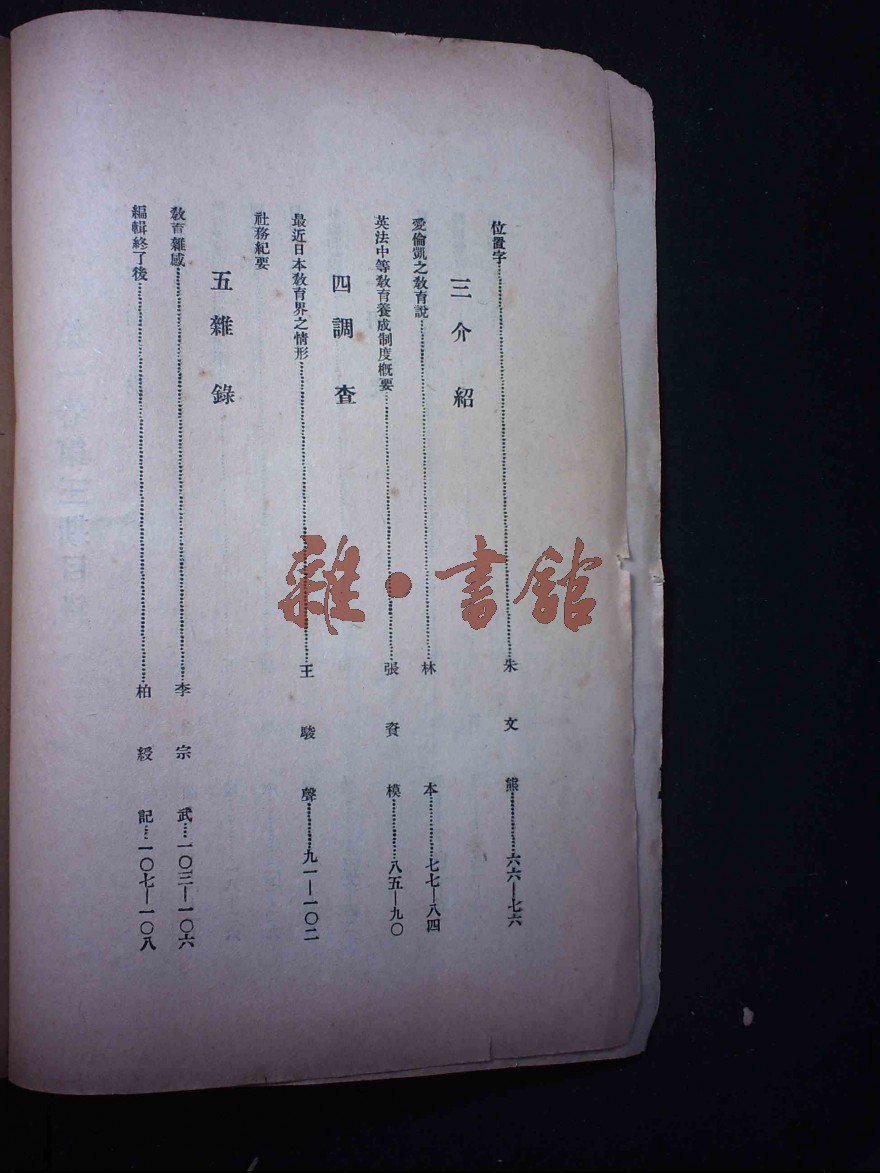 位置字……朱文熊……六六—七六
三 介紹
愛倫凱之教育說……林本……七七—八四
英法中等教育養成制度概要……張資模……八五—九〇
四 調查
最近日本教育界之情形……王駿聲……九一—一〇二
社務紀要
五 雜錄
教育雜感……李宗武…一〇三—一〇六
編輯終了後……柏綬記…一〇七—一〇八
雜·書館